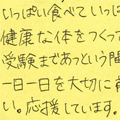 いっぱい食べていっぱ
健康な体をつくって
受験まであっという間
一日一日を大切に
い。応援しています。